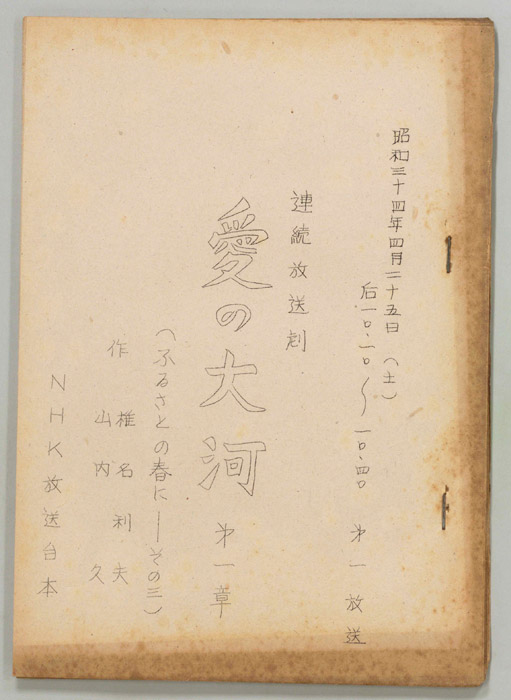 昭和三十四年四月二十五日(土)
后一〇・二〇〜一〇・四〇 第一放送
連続放送劇
愛の大河 第一章
(ふるさとの春に―その三)
作 椎名利夫
山内 久
NHK放送台本